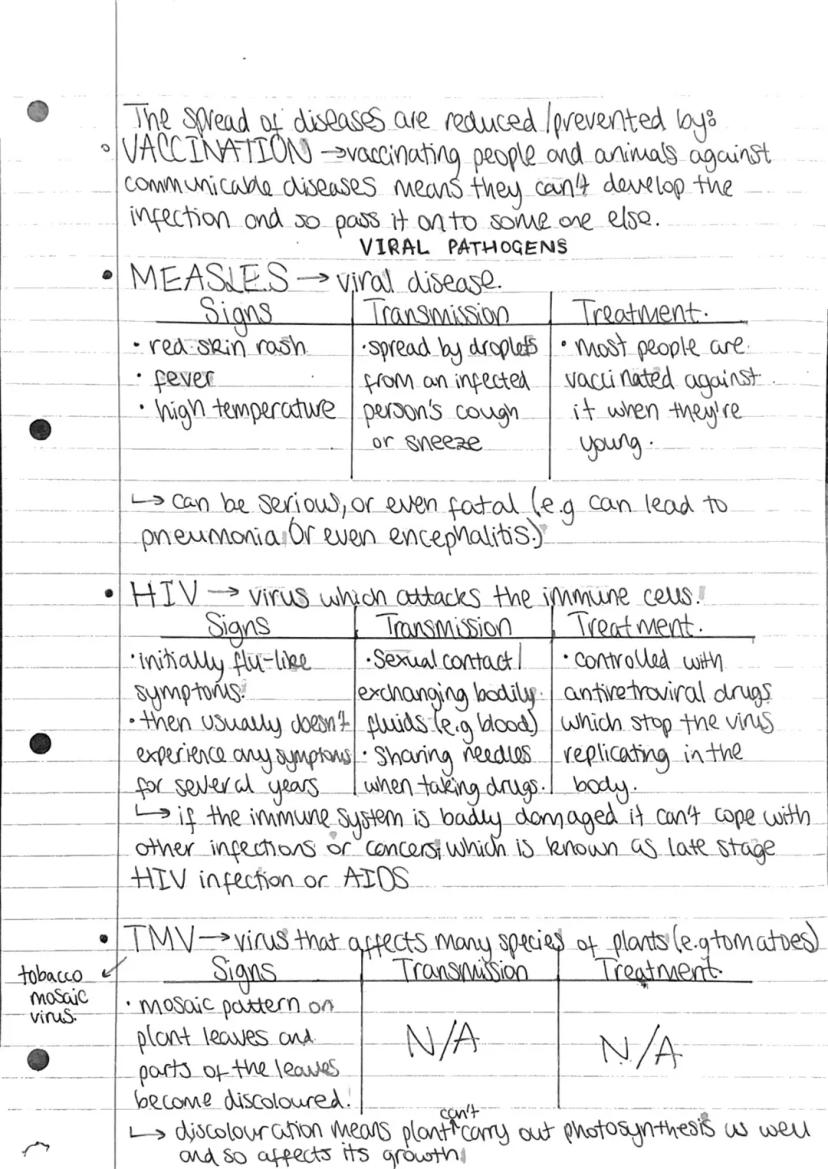 The spread of diseases are reduced/prevented by:
◦ VACCINATION → vaccinating people and animals against
communicable diseases means they can't develop the
infection and so pass it on to some one else.
VIRAL PATHOGENS
• MEASLES → viral disease.
Signs Transmission Treatment.
• red skin rash
• fever
• high temperature
• spread by droplets
from an infected
person's cough
or sneeze
• most people are
vaccinated against
it when they're
young.
↳ can be serious, or even fatal (e.g can lead to
pneumonia or even encephalitis.)
• HIV → virus which attacks the immune cells.
Signs Transmission Treatment.
• initially flu-like
symptoms.
• then usually doesn't
experience any symptoms
for several years
• Sexual contact/
exchanging bodily
fluids (e.g blood)
• sharing needles
when taking drugs.
• controlled with
antiretroviral drugs
which stop the virus
replicating in the
body.
↳ if the immune system is badly damaged it can't cope with
other infections or cancers, which is known as late stage
HIV infection or AIDS
• TMV → virus that affects many species of plants (e.g tomatoes)
tobacco
mosaic
virus.
Signs Transmission Treatment.
• mosaic pattern on
plant leaves and
parts of the leaves
become discoloured.
N/A
N/A
↳ discolouration means plant can't carry out photosynthesis as well
and so affects its growth